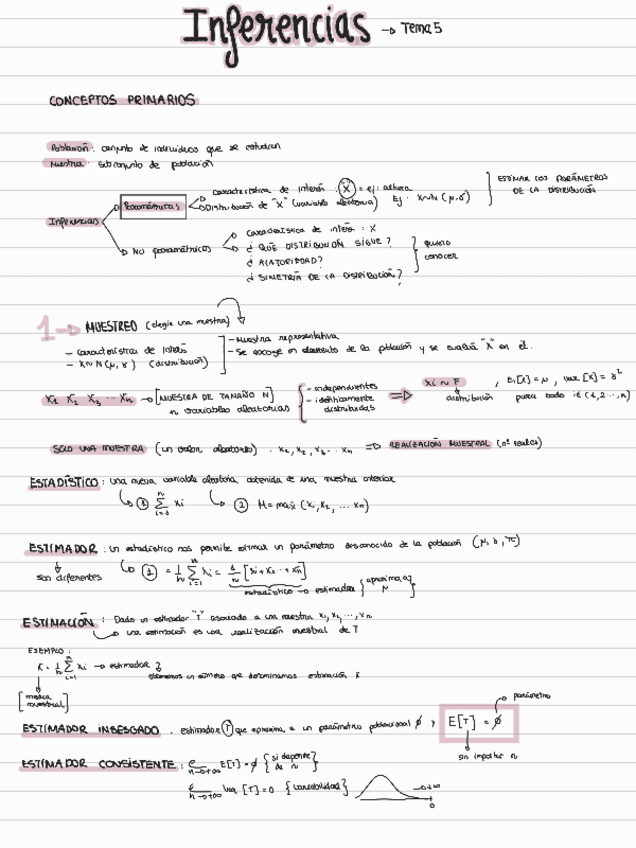 Inferencias → Tema 5
CONCEPTOS PRIMARIOS
Población: conjunto de individuos que se estudian
Muestra: subconjunto de población
Inferencias
Paramétricas
característica de interés: "X" = ej: altura
Distribución de "X" (variable aleatoria) Ej: X~N(μ,σ)
ESTIMAR LOS PARÁMETROS
DE LA DISTRIBUCIÓN
NO paramétricas
característica de interés: X
¿ QUÉ DISTRIBUCIÓN SIGUE ?
¿ ALATORIEDAD?
¿ SIMETRÍA DE LA DISTRIBUCIÓN?
quiero
conocer
1 → MUESTREO (elegir una muestra)
- características de interés
- X~N(μ, σ) (distribución)
- Muestra representativa
- Se escoge un elemento de la población y se evalúa "X" en él.
X₁ X₂ X₃ ... Xn → [MUESTRA DE TAMAÑO N]
n variables aleatorias
- independientes
- idénticamente
distribuidas
⇒ Xi ~ F , E[X] = μ , var [X] = σ²
distribución para todo i ∈ (1,2..., n)
SOLO UNA MUESTRA (un valor aleatorio) : x₁, x₂, x₃ ... xn ⇒ REALIZACIÓN MUESTRAL (nº reales)
ESTADÍSTICO: una nueva variable aleatoria obtenida de una muestra anterior
① n Σ i=1 Xi ② M = max (X₁, X₂, ... Xn)
ESTIMADOR: un estadístico nos permite estimar un parámetro desconocido de la población (μ, σ, π)
son diferentes
estadístico → estimador { aproxima a μ
ESTIMACIÓN: Dado un estimador "T" asociado a una muestra x₁, x₂, ..., xn
una estimación es una realización muestral de T
EJEMPLO:
→ estimador
obtenemos un número que denominamos estimación
[media
muestral]
ESTIMADOR INSESGADO: estimador T que aproxima a un parámetro poblacional φ y E[T] = φ
parámetro
sin importar n
ESTIMADOR CONSISTENTE: n→+∞ E[T] = φ { si depende
de n }
n→+∞ Var [T] = 0 { variabilidad }
0